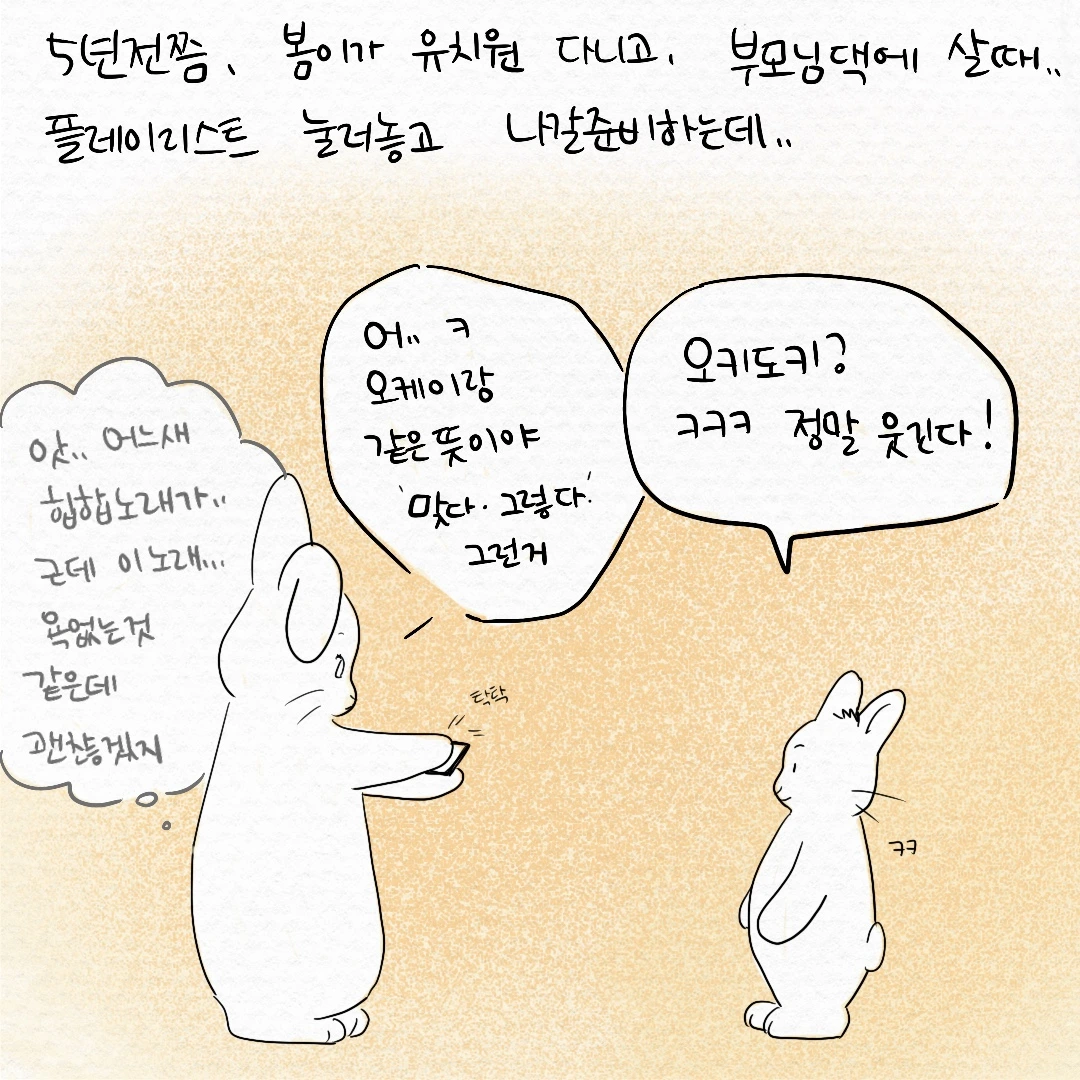 5년전쯤, 봄이가 유치원 다니고, 부모님댁에 살때..
플레이리스트 눌러놓고 나갈준비하는데..
앗.. 어느새
힙합노래가..
근데 이노래...
욕없는것
같은데
괜찮겠지
어.. ㅋ
오케이랑
같은뜻이야
'맞다. 그렇다.'
그런거
오키도키?
ㅋㅋㅋ 정말 웃긴다!
탁탁
ㅋㅋ